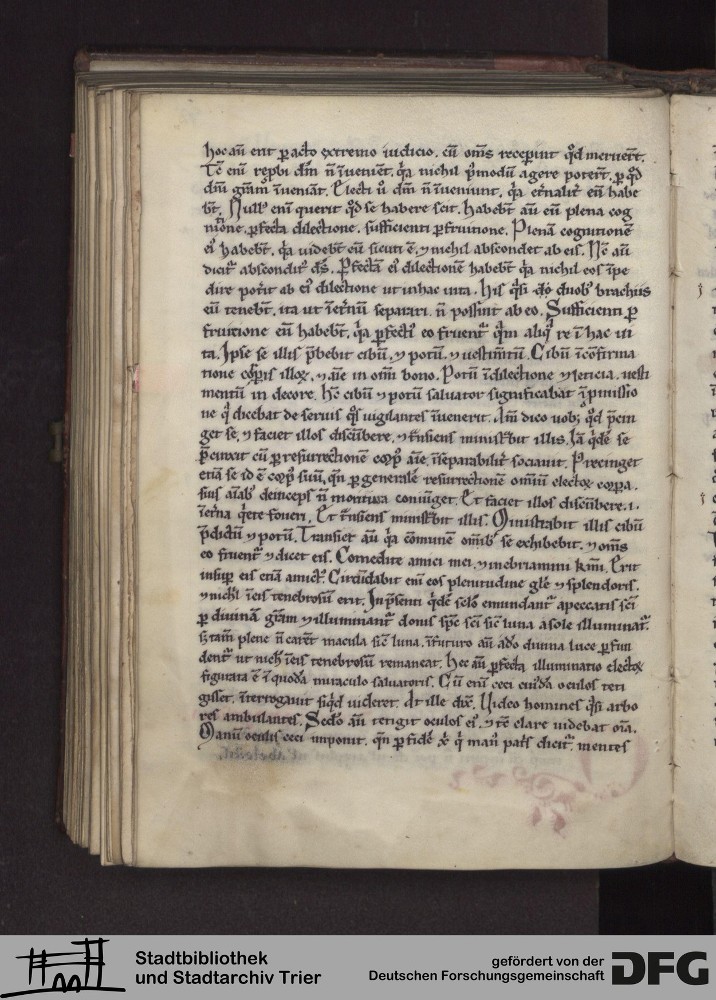 hoc aū erit ꝑacto extremo iudicio. cū om̄s receperint qd̓ meruert̄.
Tc̄ enī rep̄bi dm̄ n̄ īvenient̄. qa nichil p̄modū agere potert̄. ꝑ qd̓
dm̄ grām īveniāt. Electi ū dm̄ n̄ īveniunt. qa et̄nalit̄ eū habe
bt̄. Null᷒ enī querit qd̓ se habere scit. Habebt̄ aū eū plena cog
nitiōne. ꝑfecta dilectione. sufficienti ꝑfruitione. Plenā cognitionē
ei᷒ habebt̄. qa videbt̄ eū sicuti ē. ⁊ nichil abscondet᷒ ab eis. Nc̄ aū
dicit᷒ abscondit᷒ ds̄. Ꝑfectā ei᷒ dilectionē habebt̄ qa nichil eos īpe
dire pot̄it ab ei᷒ dilectione ut in hac uita. His qsi do̅ duob᷒ brachiis
eū tenebt̄. ita ut īet̄nū separari n̄ possint ab eo. Sufficienti ꝑ
fruitione eū habebt̄. qa ꝑfecti᷒ eo fruent᷒ qm̄ aliq̄ re ī hac ui
ta. Ipse se illis p̄bebit cibū. ⁊ potū. ⁊ uestim̄tū. Cibū ī c̄firma
tione corꝑis illoꝝ. ⁊ aīe in omī bono. Potū ī dilectione ⁊ leticia. uesti
mentū in decore. Hc̄ cibū ⁊ potū saluator significabat ī pmissio
ne q̄ dicebat de seruis qs̄ vigilantes īuenerit. Am̄ dico uob̄ qd̓ p̄cin
get se. ⁊ faciet illos discūbere. ⁊ t̄nsiens minist̄bit illis. Iā qd̄ē se
p̄cinxit cū ꝑ resurrectionē corp᷒ aīe īseparabilit̄ sociauit. Precinget
etiā se id ē corp᷒ suū. qn̄ ꝑ generalē resurrectionē omniū electoꝝ corpora
suis aīab᷒ deinceps n̄ moritura coniūget. Et faciet illos discūbere. i.
īet̄na qete foueri. Et t̄nsiens minist̄bit illis. Ministrabit illis cibū
p̄dictū ⁊ potū. Transiet aū qa cōmunē omīb᷒ se exhibebit. ⁊ om̄s
eo fruent᷒ ⁊ dicet eis. Comedite amici mei. ⁊ inebriamini kmī. Erit
insuꝑ eis etiā amict᷒. Circūdabit enī eos plenitudine gl̄e ⁊ splendoris.
⁊ nichil ī eis tenebrosū erit. In p̄senti qd̄ē sc̄lo emundant᷒ a peccatis sc̄i
ꝑ diuinā grām ⁊ illuminant᷒ donis spc̄ sc̄i sic̄ luna a sole illuminat᷒.
s; tam̄ plene n̄ carēt macula sic̄ luna. ī futuro aū a do̅ diuina luce ꝑfun
dent᷒ ut nich̄ ī eis tenebrosū remaneat. Hec aū ꝑfecta illuminatio electoꝝ
figurata ē ī quodā miraculo saluatoris. Cū enī ceci cui᷒dā oculos teti
gisset. īterrogauit si qd̓ uideret. At ille dix̄. Video homines qsi arbo
res ambulantes. Sc̄do aū tetigit oculos ei᷒. ⁊ tc̄ clare videbat oīa.
Manū oculis ceci imponit. qn̄ ꝑ fidē xp̄i q̄ man᷒ patris dicit᷒. mentes
Stadtbibliothek
und Stadtarchiv Trier
gefördert von der
Deutschen Forschungsgemeinschaft
DFG